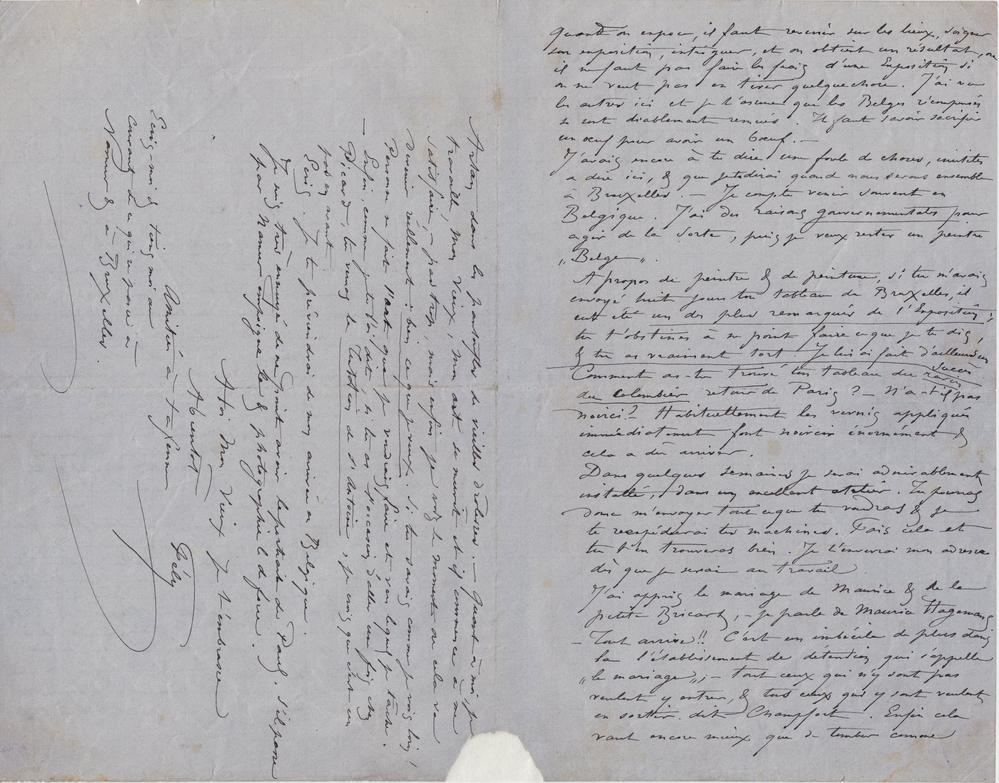 quand on expose, il faut revenir sur les lieux, soigner
son exposition, intriguer, et on obtient un résultat, ou
il ne faut pas faire les frais d'une Exposition si
on ne veut pas en tirer quelque chose. J'ai vu
les autres ici et je t'assure que les Belges récompensés
se sont diablement remués. Il faut savoir sacrifier
un œuf pour avoir un bœuf. —
J'avais encore à te dire une foule de choses, inutiles
à dire ici, & que je te dirai quand nous serons ensemble
à Bruxelles — Je compte venir souvent en
Belgique. J'ai des raisons gouvernementales pour
agir de la sorte, puis je veux rester un peintre
„Belge".
A propos de peintre & de peinture, si tu m'avais
envoyé huit jours ton tableau de Bruxelles, il
eut été un des plus remarqués de l'Exposition;
tu t'obstines à ne point faire ce que je te dis,
& tu as vraiment tort. Je lui ai fait d'ailleurs un succès
Comment as-tu trouvé ton tableau du
du Colombier retour de Paris? — N'a-t-il pas
noirci? Habituellement les vernis appliqués
immédiatement font noircir énormément &
cela a dû arriver.
Dans quelques semaines je serai admirablement
installé, dans un excellent atelier. Tu pourras
donc m'envoyer tout ce que tu voudras & je
te réexpédierai tes machines. Fais cela et
tu t'en trouveras bien. Je t'enverrai mon adresse
dès que je serai au travail
J'ai appris le mariage de Maurice & de la
petite Bricart, — je parle de Maurice Hagemans
— Tout arrive!! C'est un imbécile de plus dans
la l'établissement de détention qui s'appelle
„le mariage"; — tout ceux qui n'y sont pas
veulent y entrer, & tous ceux qui y sont veulent
en sortir dit Champfort. Enfin cela
vaut encore mieux que de tomber comme
Artan dans les pantoufles de vieilles drôlesses. — Quant à moi je
travaille, mon vieux, mon art se nourrit et je commence à me
satisfaire, — pas trop, mais enfin je vois le moment où cela va
devenir réellement bien ce que je veux. Si tu savais comme je vois loin!
Personne ne fait l'art que je voudrais faire et vers lequel je tâche.
— Enfin, comme je te l'ai dit, si tu as l'occasion d'aller une fois chez
Picard, tu verras la Tentation de St Antoine, je crois que c'est en
bas en avant.
Ecris. Je te préviendrai de mon arrivée en Belgique.
Je suis très ennuyé de ne point avoir le portrait de Paul. S'il passe
par Namur empoigne le & photographie le de force.
A toi Mon Vieux Je t'embrasse
A bientôt
Fély
Amitiés à ta femme
Ecris-moi & tiens moi au
courant de ce qui se passe à
Namur & à Bruxelles.